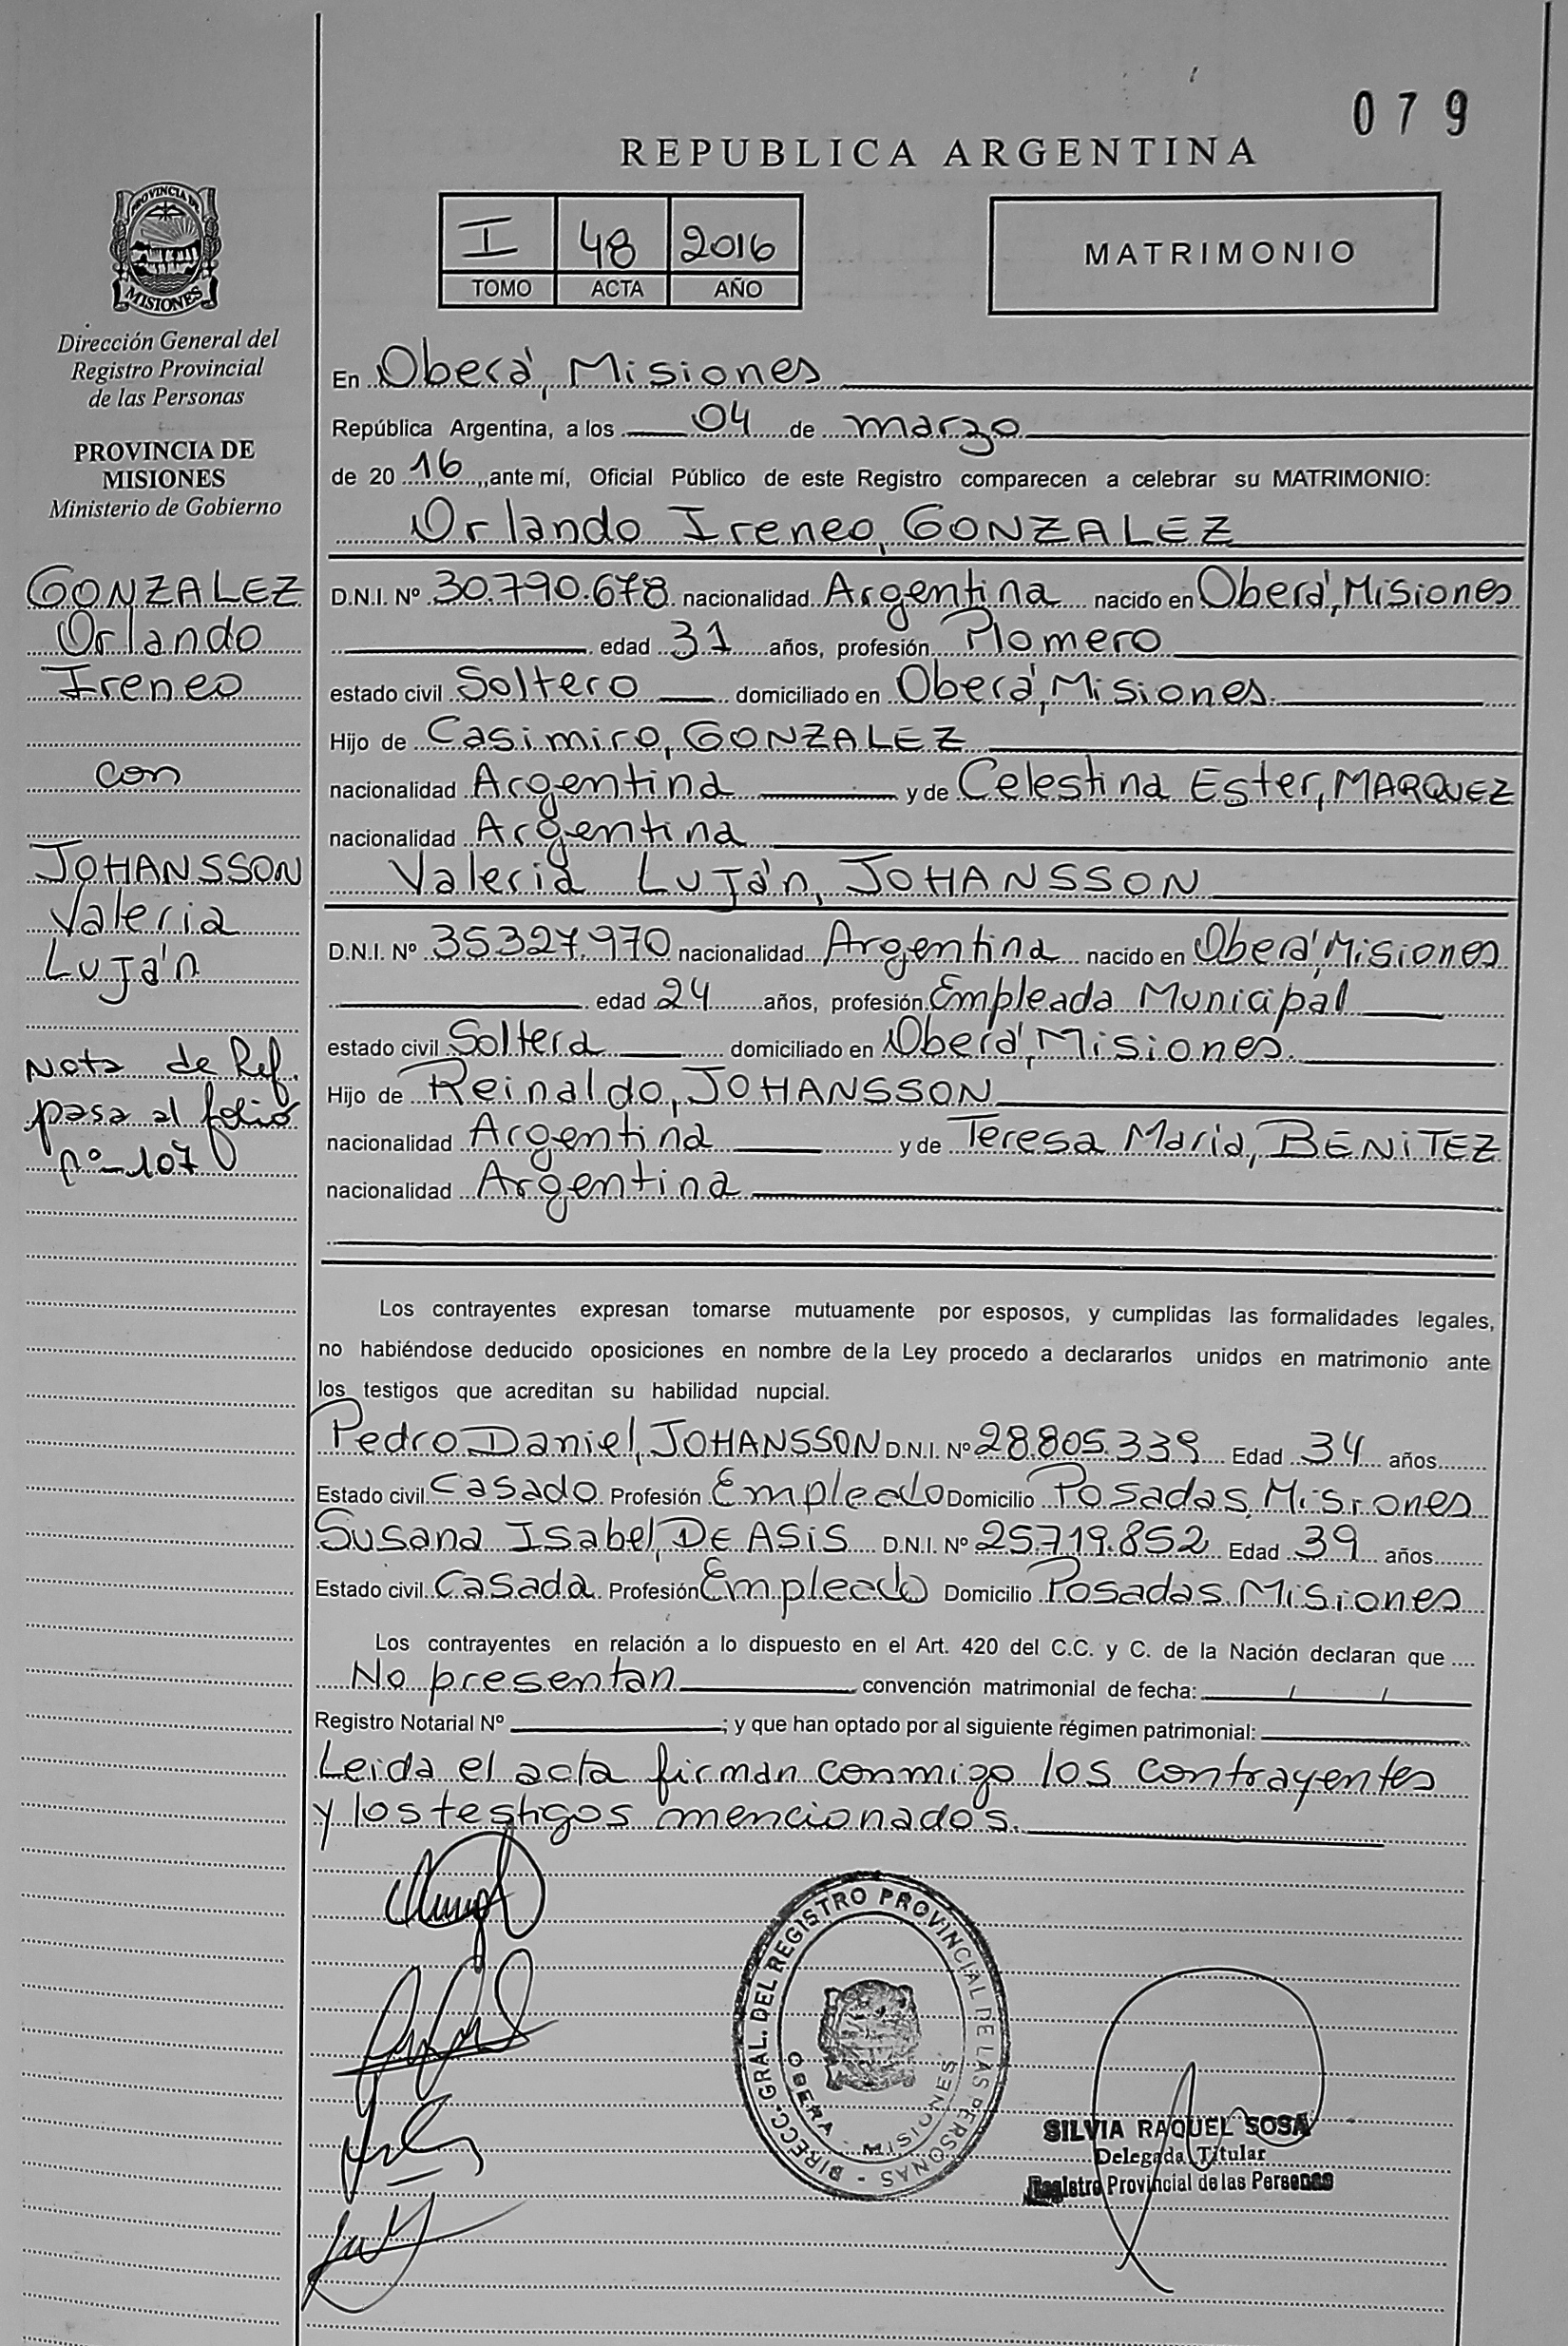 079
REPUBLICA ARGENTINA
I 48 2016
TOMO ACTA AÑO
MATRIMONIO
PROVINCIA DE
MISIONES
Dirección General del
Registro Provincial
de las Personas
PROVINCIA DE
MISIONES
Ministerio de Gobierno
GONZALEZ
Orlando
Ireneo
con
JOHANSSON
Valeria
Luján
Nota de Ref.
pasa al folio
nº 107
En Oberá, Misiones
República Argentina, a los 04 de marzo
de 20 16, ante mí, Oficial Público de este Registro comparecen a celebrar su MATRIMONIO:
Orlando Ireneo, GONZALEZ
D.N.I. Nº 30.790.678 nacionalidad Argentina nacido en Oberá, Misiones
edad 31 años, profesión Plomero
estado civil Soltero domiciliado en Oberá, Misiones.
Hijo de Casimiro, GONZALEZ
nacionalidad Argentina y de Celestina Ester, MARQUEZ
nacionalidad Argentina
Valeria Luján, JOHANSSON
D.N.I. Nº 35327.970 nacionalidad Argentina nacido en Oberá, Misiones
edad 24 años, profesión Empleada Municipal
estado civil Soltera domiciliado en Oberá, Misiones.
Hijo de Reinaldo, JOHANSSON
nacionalidad Argentina y de Teresa Maria, BENITEZ
nacionalidad Argentina
Los contrayentes expresan tomarse mutuamente por esposos, y cumplidas las formalidades legales,
no habiéndose deducido oposiciones en nombre de la Ley procedo a declararlos unidos en matrimonio ante
los testigos que acreditan su habilidad nupcial.
Pedro Daniel, JOHANSSON D.N.I. Nº 28.805.339 Edad 34 años
Estado civil Casado Profesión Empleado Domicilio Posadas, Misiones
Susana Isabel, DE ASIS D.N.I. Nº 25.719.852 Edad 39 años
Estado civil Casada Profesión Empleado Domicilio Posadas, Misiones
Los contrayentes en relación a lo dispuesto en el Art. 420 del C.C. y C. de la Nación declaran que ....
No presentan convención matrimonial de fecha: / /
Registro Notarial Nº ; y que han optado por al siguiente régimen patrimonial:
Leida el acta firman conmigo los contrayentes
y los testigos mencionados.
DIRECC. GRAL. DEL REGISTRO PROVINCIAL DE LAS PERSONAS
OBERA - MISIONES
SILVIA RAQUEL SOSA
Delegada Titular
Registro Provincial de las Personas